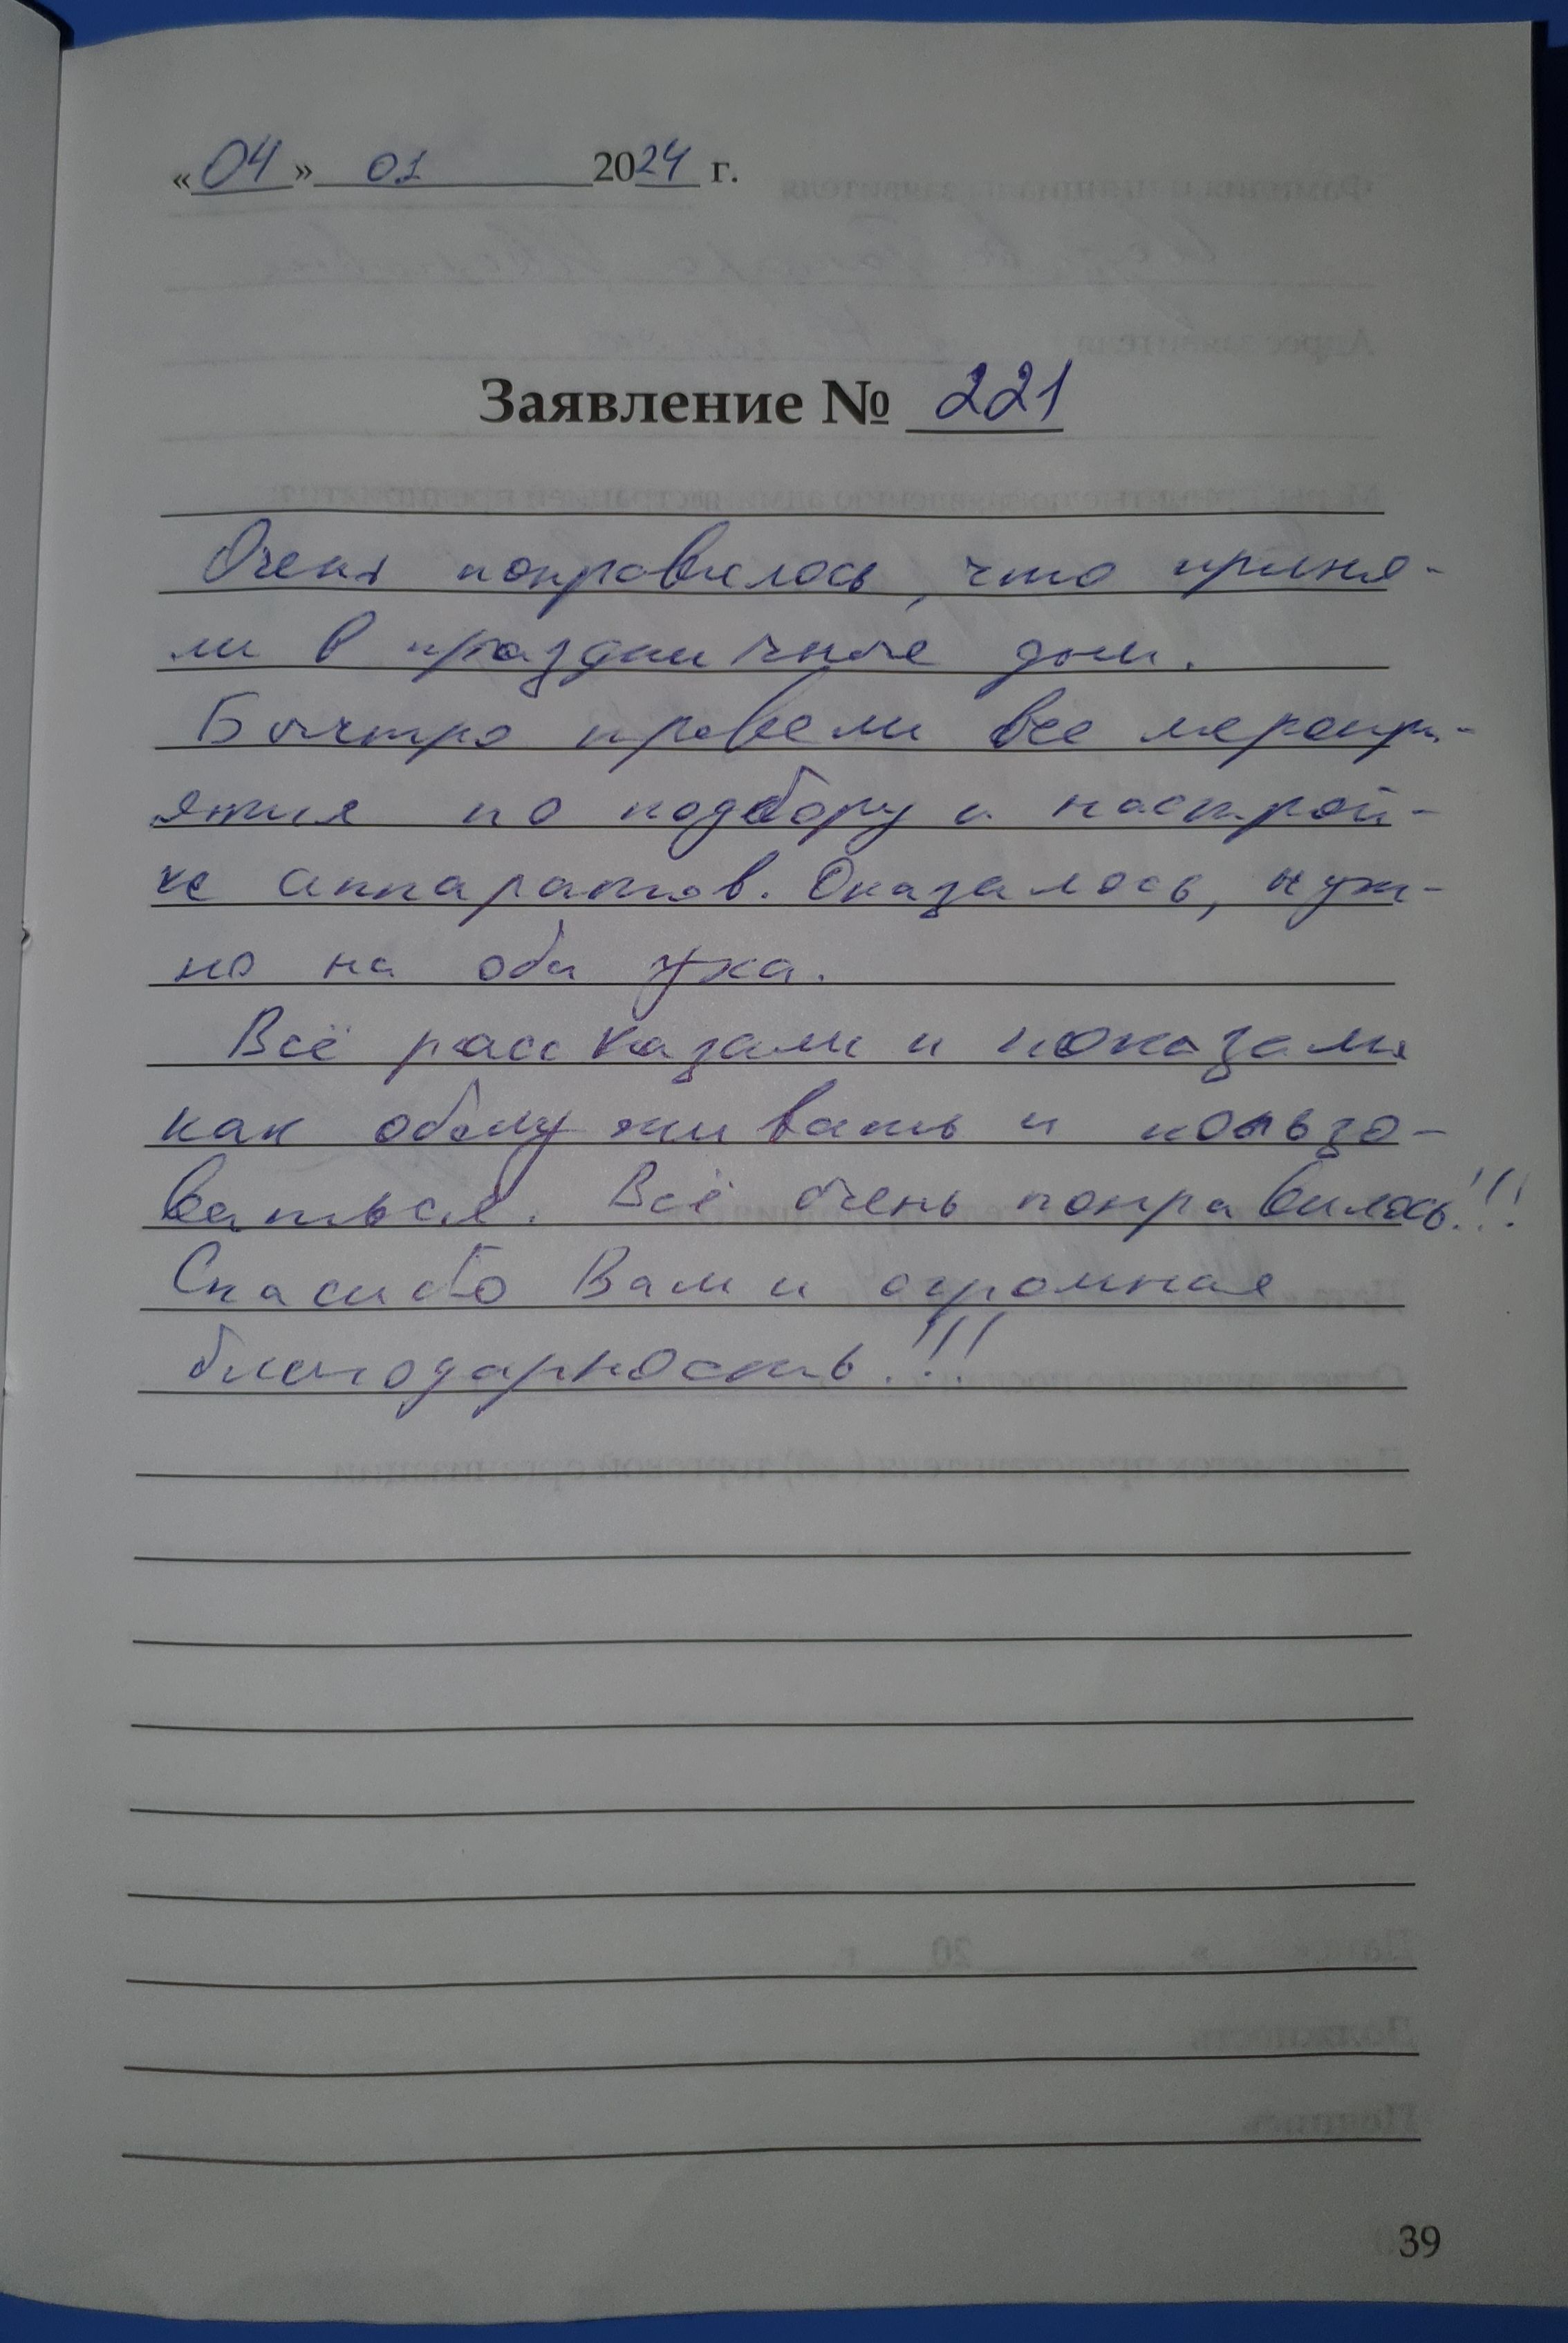 «04» 01 2024 г.
Заявление № 221
Очень понравилось, что приня-
ли в праздничные дни.
Быстро провели все меропри-
ятия по подбору и настрой-
ке аппаратов. Оказалось, нуж-
но на оба уха.
Всё рассказали и показали
как обслуживать и пользо-
ваться. Всё очень понравилось!!!
Спасибо Вам и огромная
благодарность!!!
39